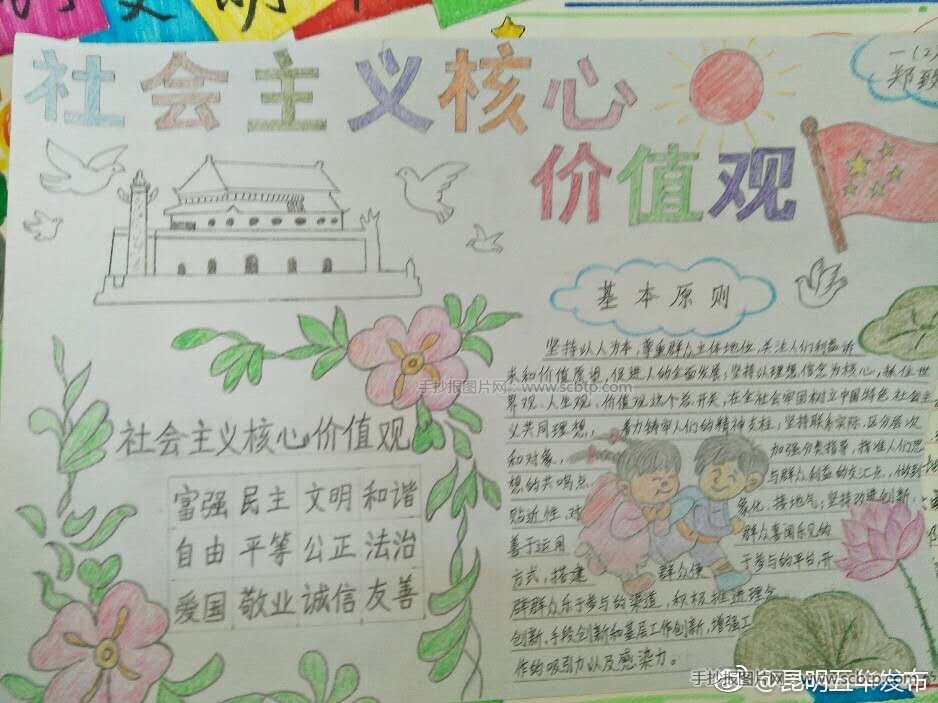 文明
社会主义核心
价值观
一(2)
郑
基本原则
坚持以人为本，尊重群众主体地位，关注人们利益诉
求和价值愿望，促进人的全面发展；坚持以理想信念为核心，抓住世
手抄报图片网 www.scbtp.com
界观、人生观、价值观这个总开关，在全社会牢固树立中国特色社会主
义共同理想，着力铸牢人们的精神支柱；坚持联系实际，区分层次
和对象，加强分类指导，找准人们思
想的共鸣点、与群众利益的交汇点，做到
贴近性、对象化、接地气；坚持改进创新，
善于运用群众喜闻乐见的
方式，搭建群众便于参与的平台，开
辟群众乐于参与的渠道，积极推进理念
创新、手段创新和基层工作创新，增强工
作的吸引力以及感染力。
社会主义核心价值观
富强 民主 文明 和谐
自由 平等 公正 法治
爱国 敬业 诚信 友善
手抄报图片网 www.scbtp.com
@昆明五华发布